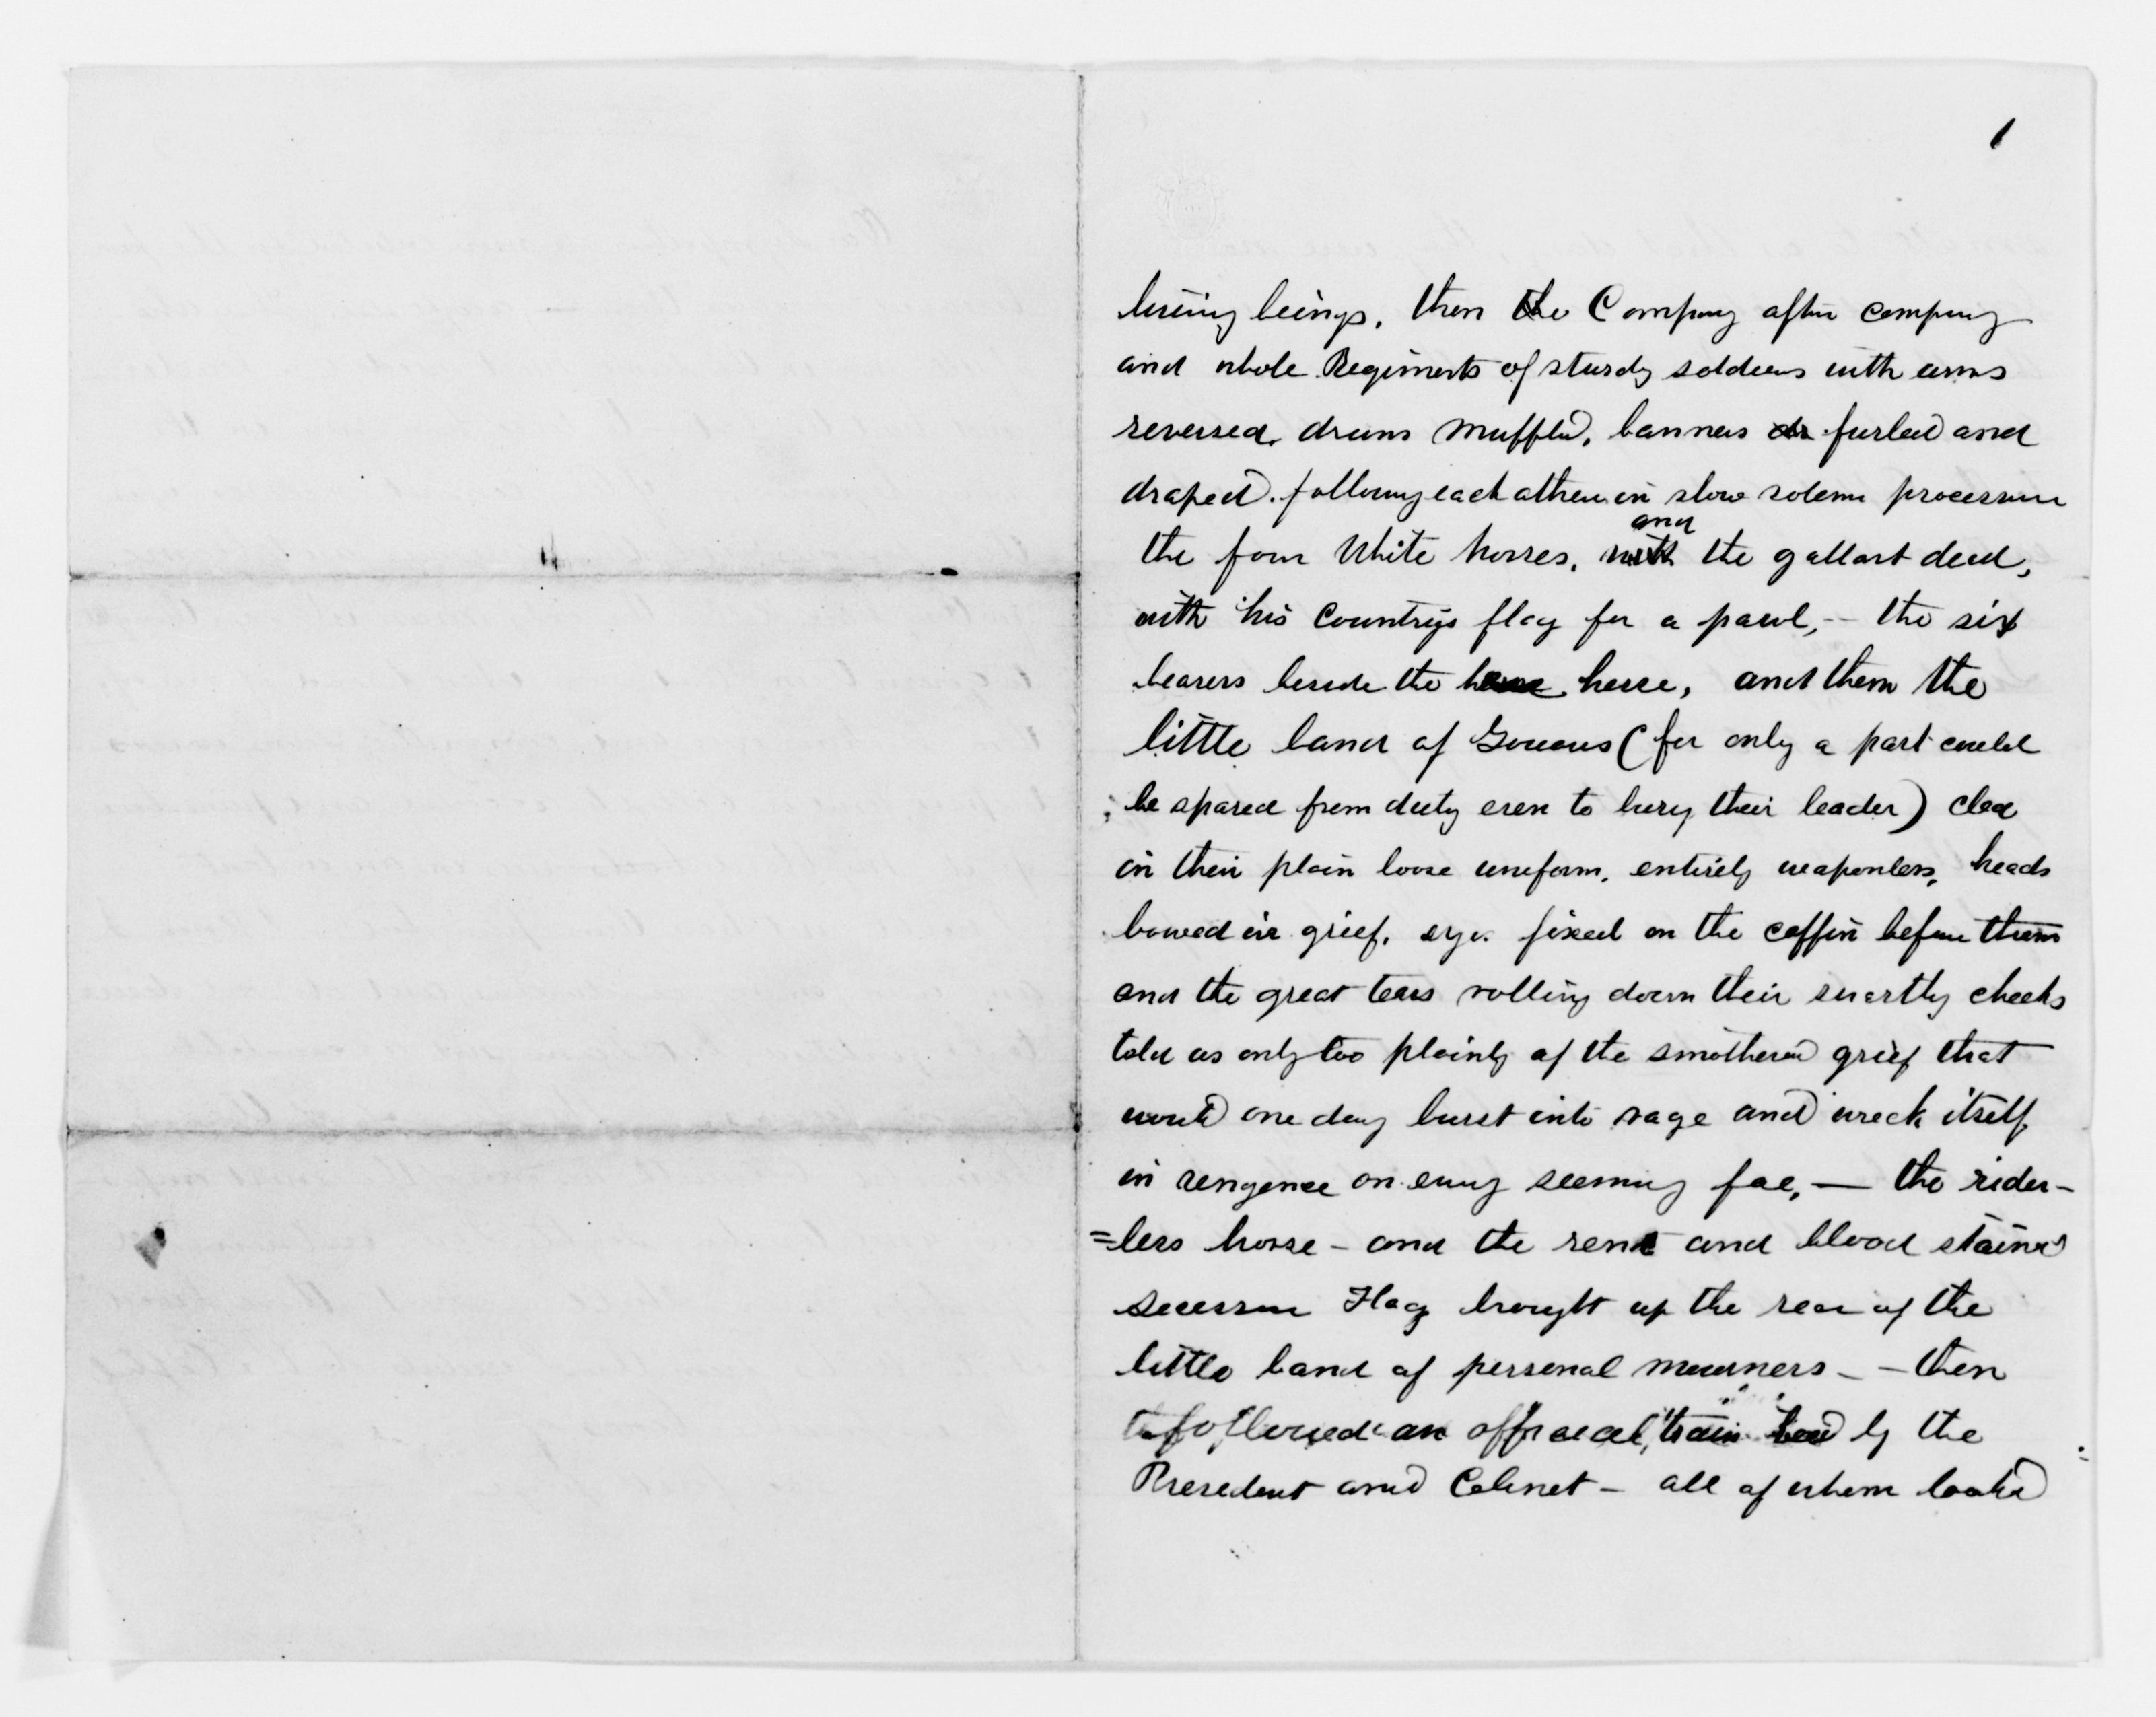 1
living beings, then the Company after company
and whole Regiments of sturdy soldiers with arms
reversed, drums muffled, banners dr furled and
draped. following each other in slow solemn procession
and
the four White horses, with the gallant dead,
with his Countrys flag for a pawl, – the six
bearers beside the hearse herse, and then the
little band of Zouaves (for only a part could
be spared from duty even to bury their leader) clad
in their plain loose uniform, entirely weaponless, heads
bowed in grief, eyes fixed on the coffin before them
and the great tears rolling down their swarthy cheeks
told us only too plainly of the smothered grief that
would one day burst into rage and wreck itself
in vengence on every seeming foe, — the rider-
=less horse – and the rent and blood stained
Secession Flag brought up the rear of the
little band of personal mourners – – then
followed an official "train" led by the
President and Cabinet – all of whom looked